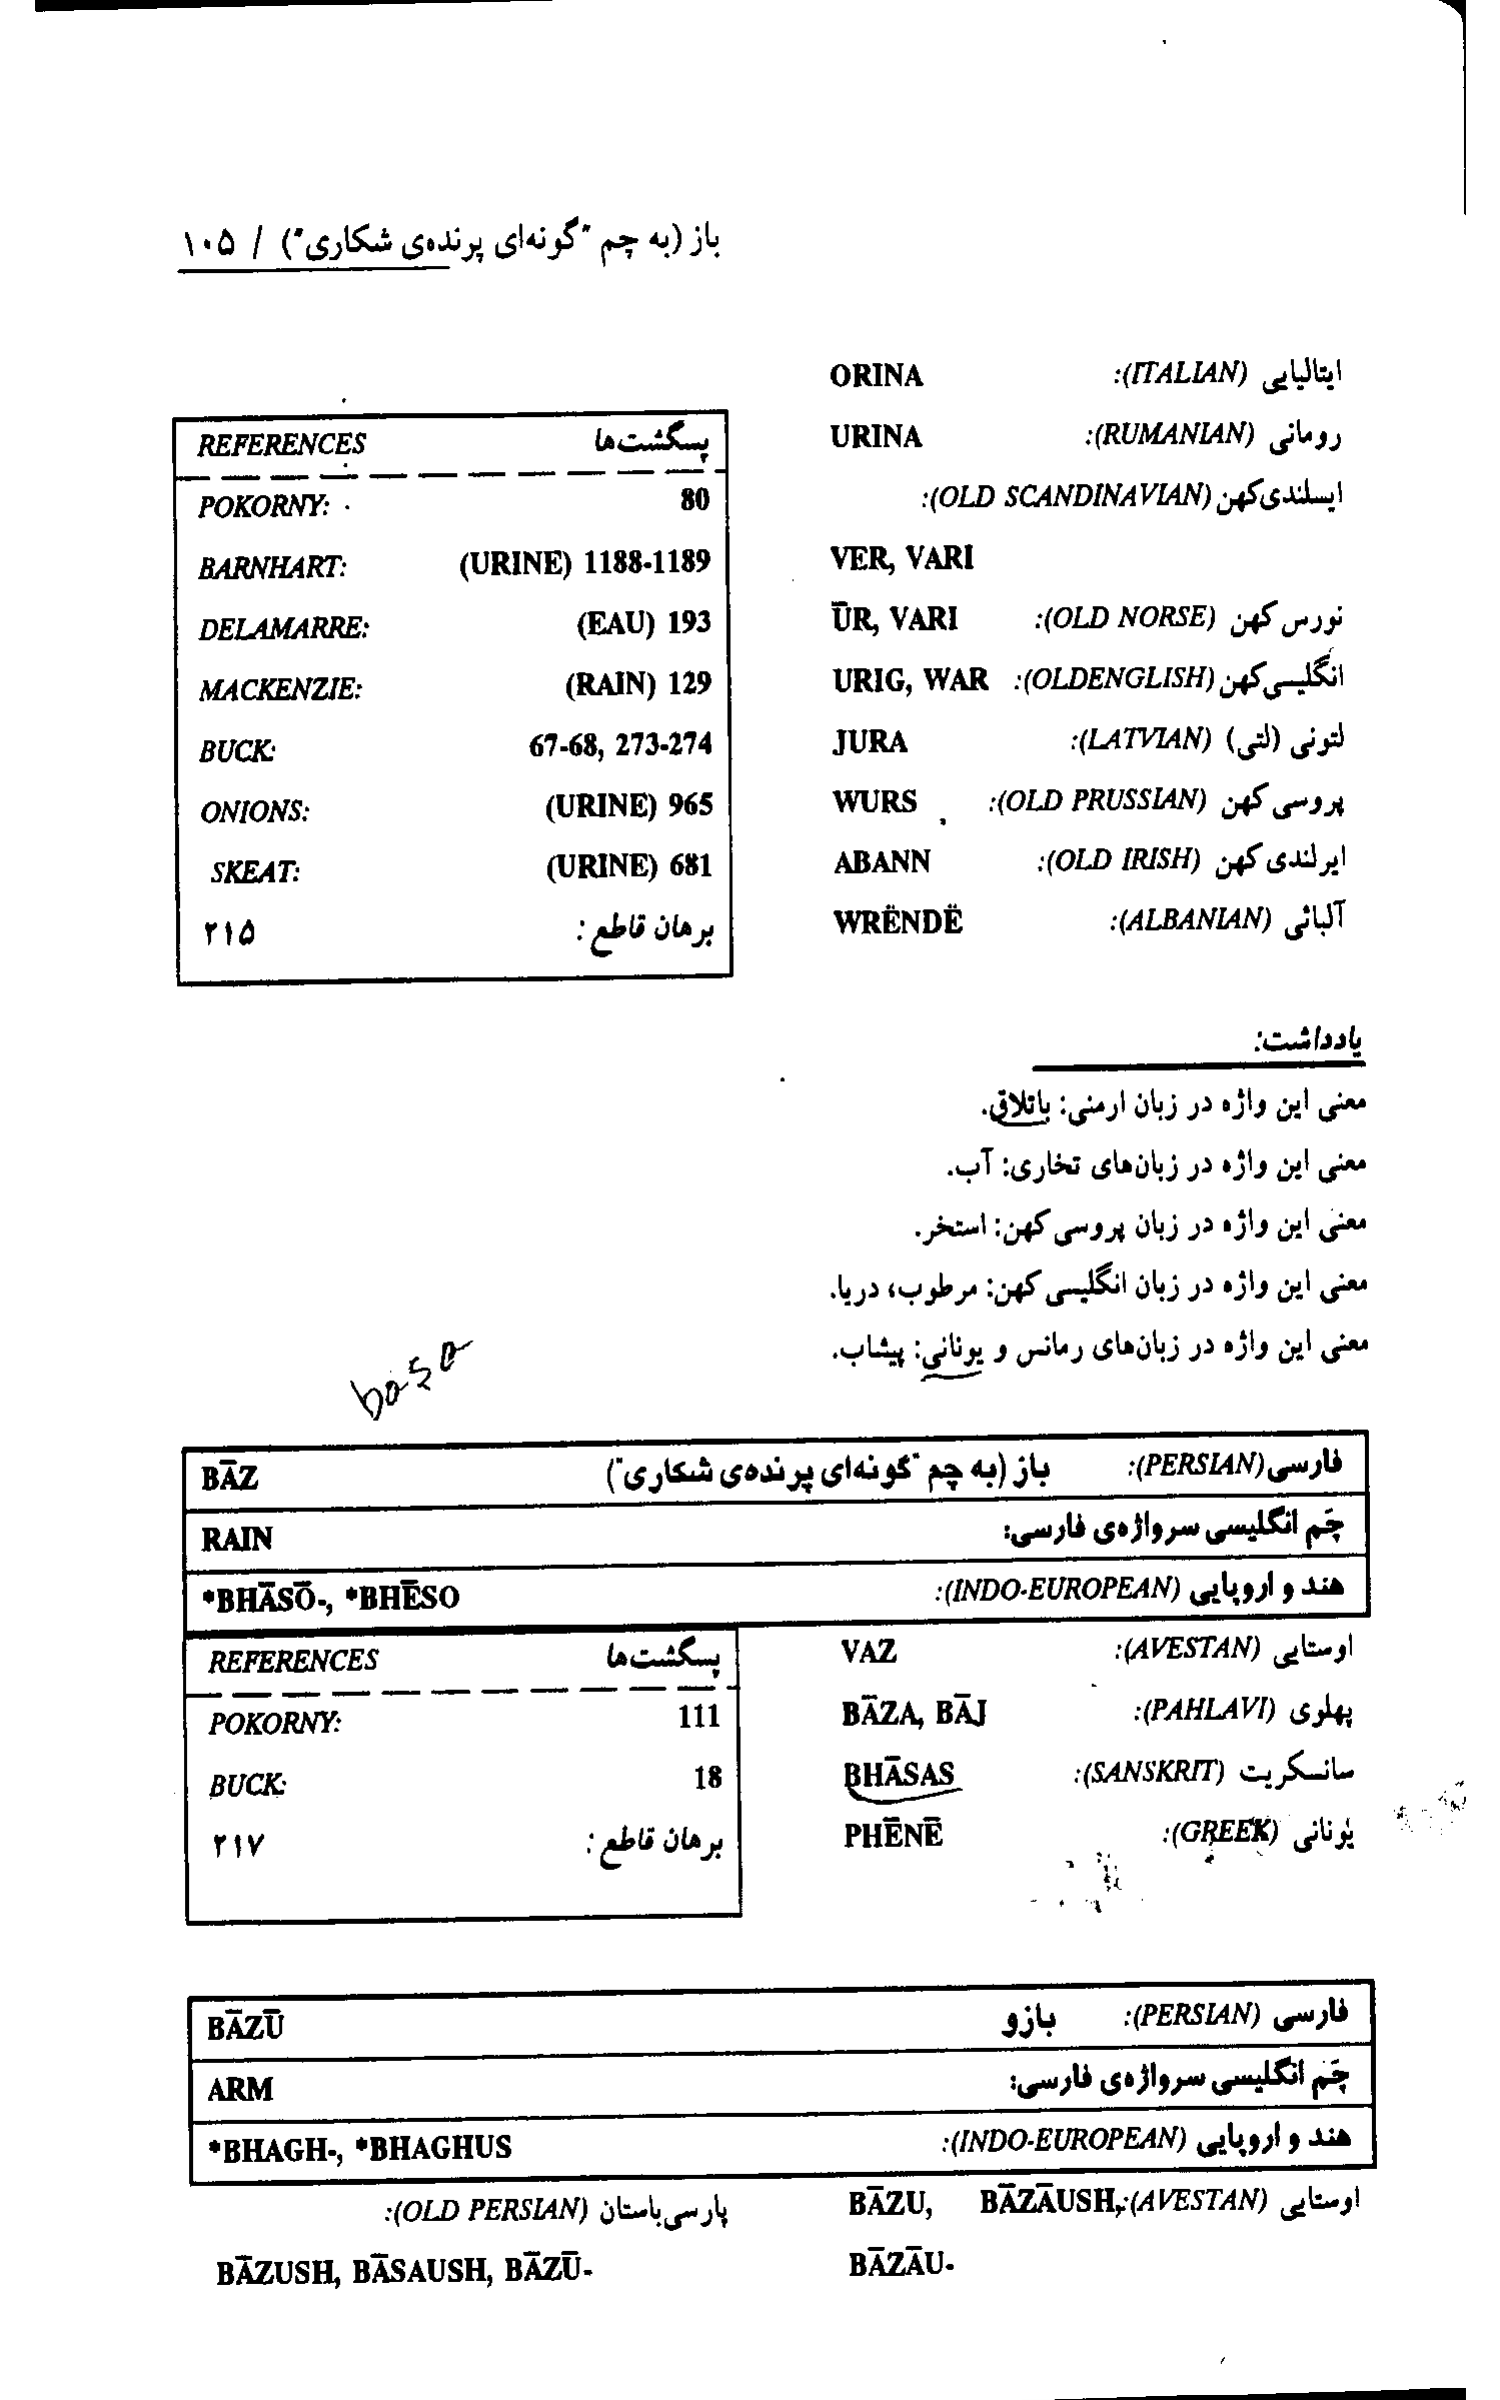 باز (به چم "گونه‌ای پرنده‌ی شکاری") / ۱۰۵
ایتالیایی (ITALIAN): ORINA
رومانی (RUMANIAN): URINA
ایسلندی کهن (OLD SCANDINAVIAN):
VER, VARI
نورس کهن (OLD NORSE): ŪR, VARI
انگلیسی کهن (OLDENGLISH): URIG, WAR
لتونی (لتی) (LATVIAN): JURA
پروسی کهن (OLD PRUSSIAN): WURS
ایرلندی کهن (OLD IRISH): ABANN
آلبانی (ALBANIAN): WRËNDË
REFERENCES پسگشت‌ها
POKORNY: 80
BARNHART: (URINE) 1188-1189
DELAMARRE: (EAU) 193
MACKENZIE: (RAIN) 129
BUCK: 67-68, 273-274
ONIONS: (URINE) 965
SKEAT: (URINE) 681
برهان قاطع : ۲۱۵
یادداشت:
معنی این واژه در زبان ارمنی: باتلاق.
معنی این واژه در زبان‌های تخاری: آب.
معنی این واژه در زبان پروسی کهن: استخر.
معنی این واژه در زبان انگلیسی کهن: مرطوب، دریا.
معنی این واژه در زبان‌های رمانس و یونانی: پیشاب.
فارسی (PERSIAN): باز (به چم "گونه‌ای پرنده‌ی شکاری") BĀZ
چَم انگلیسی سرواژه‌ی فارسی: RAIN
هند و اروپایی (INDO-EUROPEAN): *BHĀSŌ-, *BHĒSO
اوستایی (AVESTAN): VAZ
پهلوی (PAHLAVI): BĀZA, BĀJ
سانسکریت (SANSKRIT): BHĀSAS
یونانی (GREEK): PHĒNĒ
REFERENCES پسگشت‌ها
POKORNY: 111
BUCK: 18
برهان قاطع : ۲۱۷
فارسی (PERSIAN): بازو BĀZŪ
چَم انگلیسی سرواژه‌ی فارسی: ARM
هند و اروپایی (INDO-EUROPEAN): *BHAGH-, *BHAGHUS
اوستایی (AVESTAN): BĀZU, BĀZĀUSH,
BĀZĀU-
پارسی باستان (OLD PERSIAN):
BĀZUSH, BĀSAUSH, BĀZŪ-